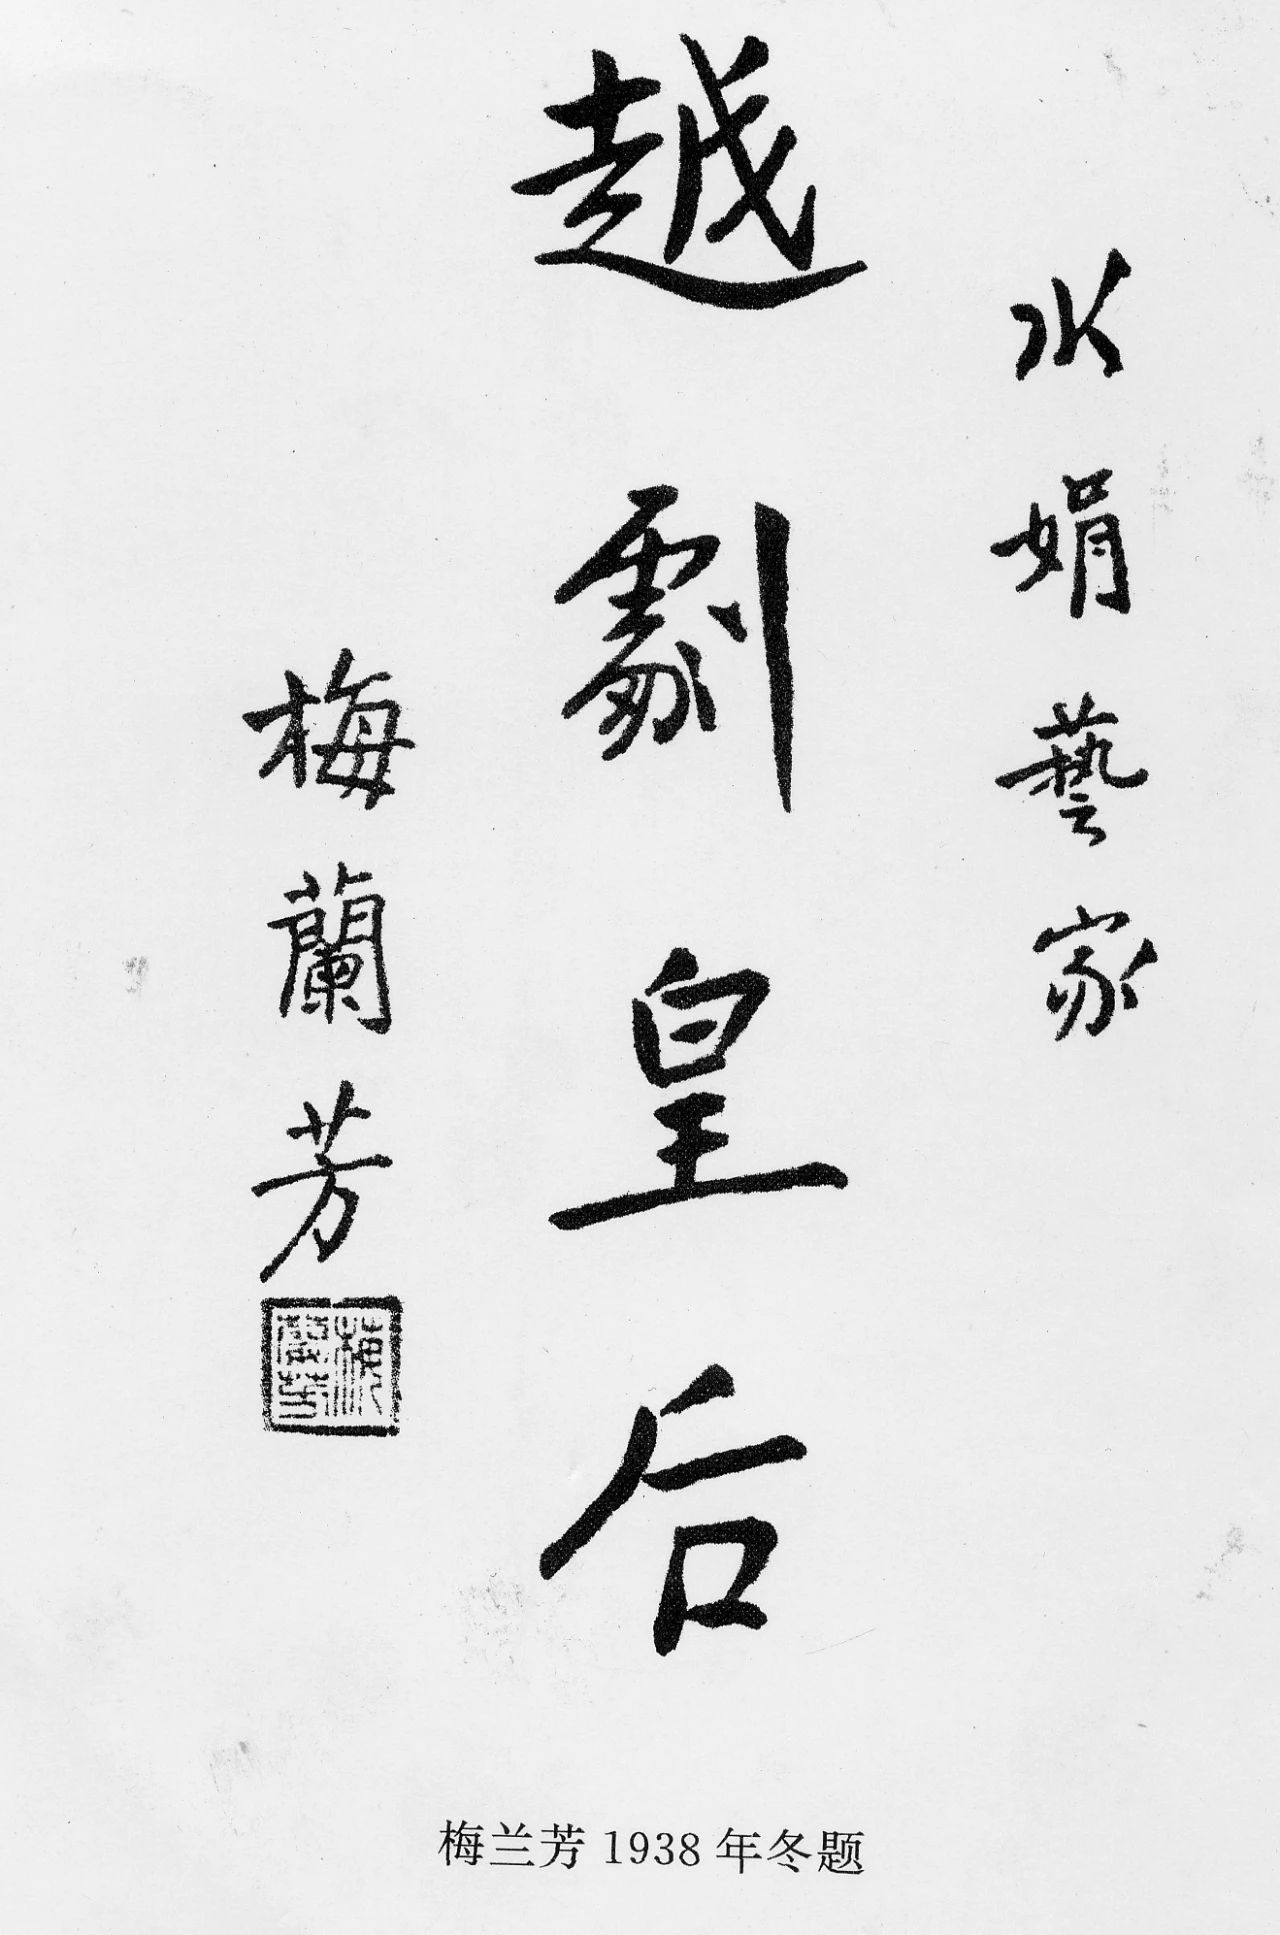 水娟藝家
越劇皇后
梅蘭芳
梅蘭芳
梅兰芳 1938 年冬题